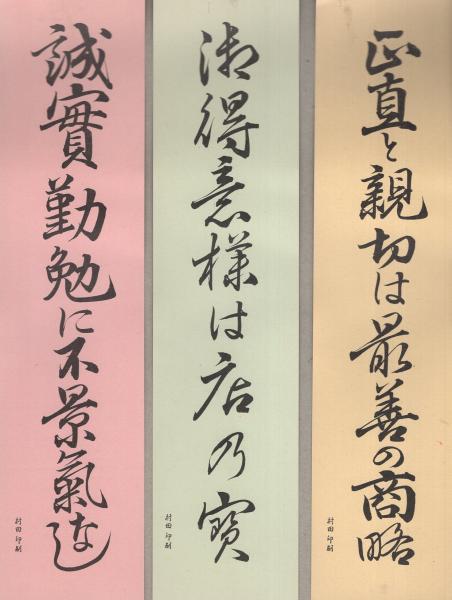 正直と親切は最善の商略
村田印刷
御得意様は店の寶
村田印刷
誠實勤勉に不景氣なし
村田印刷